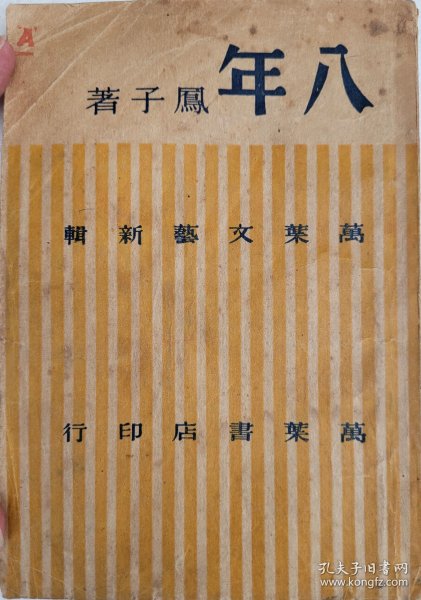 A
八年
鳳子著
萬葉文藝新輯
萬葉書店印行
孔夫子旧书网
www.kongfz.com